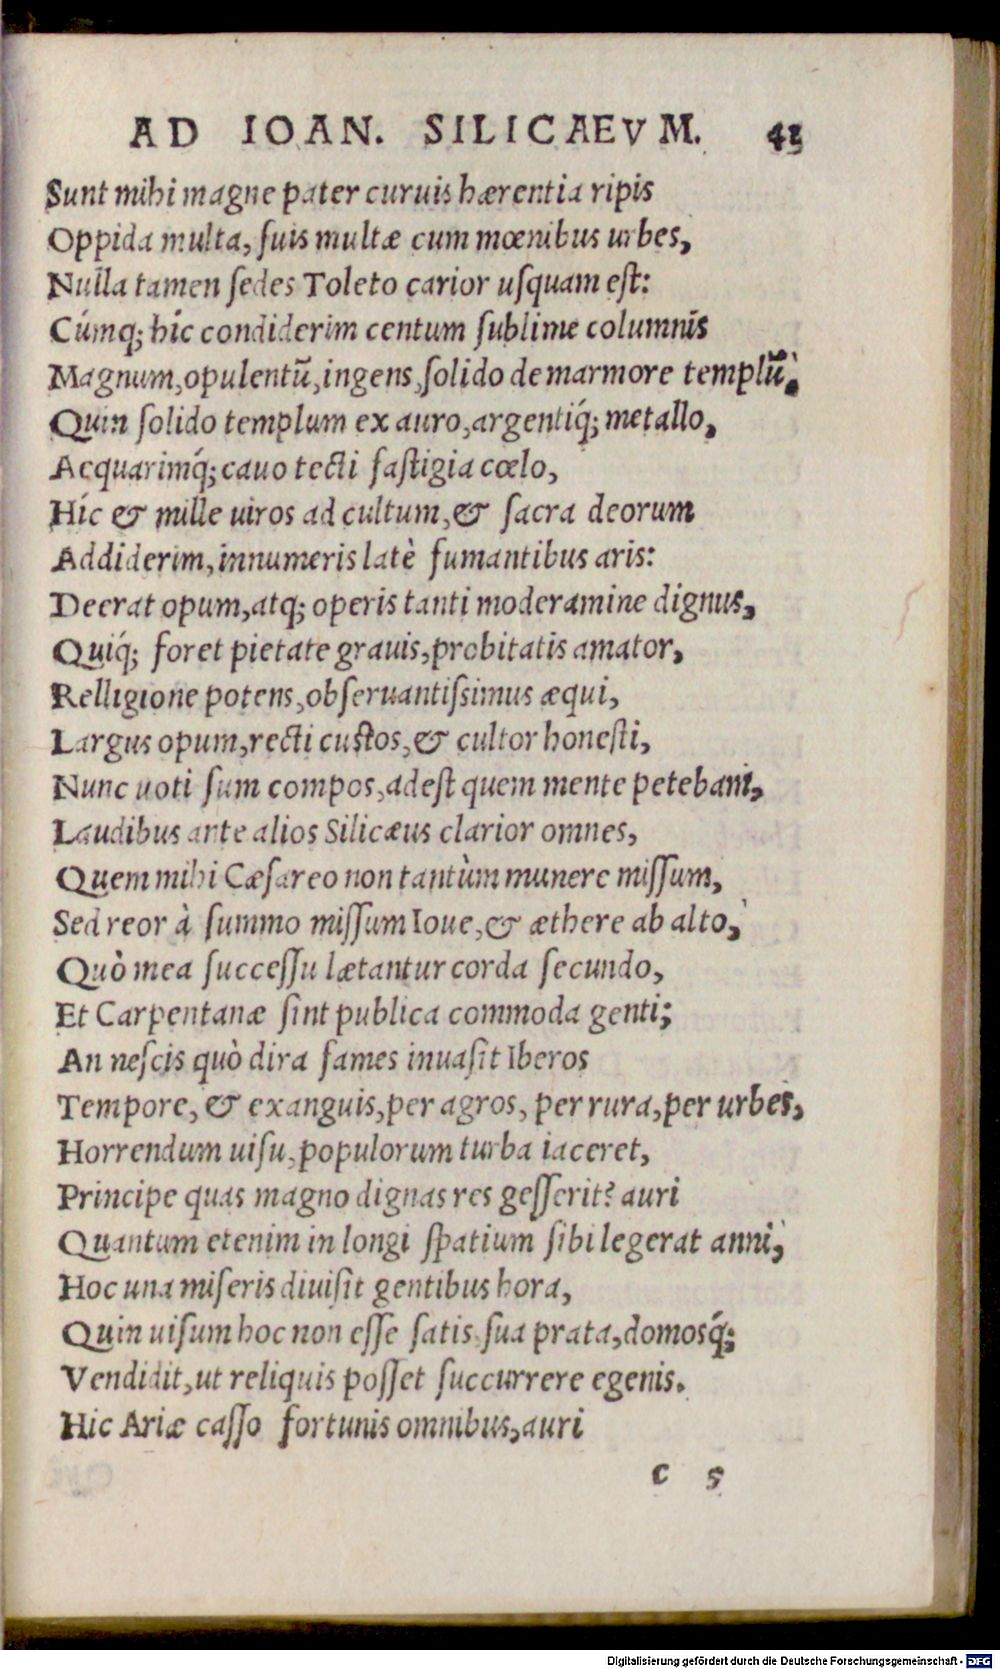 AD IOAN. SILICAEVM. 43
Sunt mihi magne pater curuis hærentia ripis
Oppida multa, ſuis multæ cum mœnibus urbes,
Nulla tamen ſedes Toleto carior uſquam eſt:
Cúmq; hîc condiderim centum ſublime columnis
Magnum, opulentũ, ingens, ſolido de marmore templũ,
Quin ſolido templum ex auro, argentiq́; metallo,
Aequarimq́; cauo tecti faſtigia cœlo,
Hîc & mille uiros ad cultum, & ſacra deorum
Addiderim, innumeris latè fumantibus aris:
Deerat opum, atq; operis tanti moderamine dignus,
Quiq́; foret pietate grauis, probitatis amator,
Relligione potens, obſeruantiſsimus æqui,
Largus opum, recti cuſtos, & cultor honeſti,
Nunc uoti ſum compos, adeſt quem mente petebam,
Laudibus ante alios Silicæus clarior omnes,
Quem mihi Cæſareo non tantùm munere miſſum,
Sed reor à ſummo miſſum Ioue, & æthere ab alto,
Quò mea ſucceſſu lætantur corda ſecundo,
Et Carpentanæ ſint publica commoda genti;
An neſcis quò dira fames inuaſit Iberos
Tempore, & exanguis, per agros, per rura, per urbes,
Horrendum uiſu, populorum turba iaceret,
Principe quas magno dignas res geſſerit? auri
Quantum etenim in longi ſpatium ſibi legerat anni,
Hoc una miſeris diuiſit gentibus hora,
Quin uiſum hoc non eſſe ſatis ſua prata, domosq́;
Vendidit, ut reliquis poſſet ſuccurrere egenis.
Hic Ariæ caſſo fortunis omnibus, auri
c 5
Digitalisierung gefördert durch die Deutsche Forschungsgemeinschaft - DFG